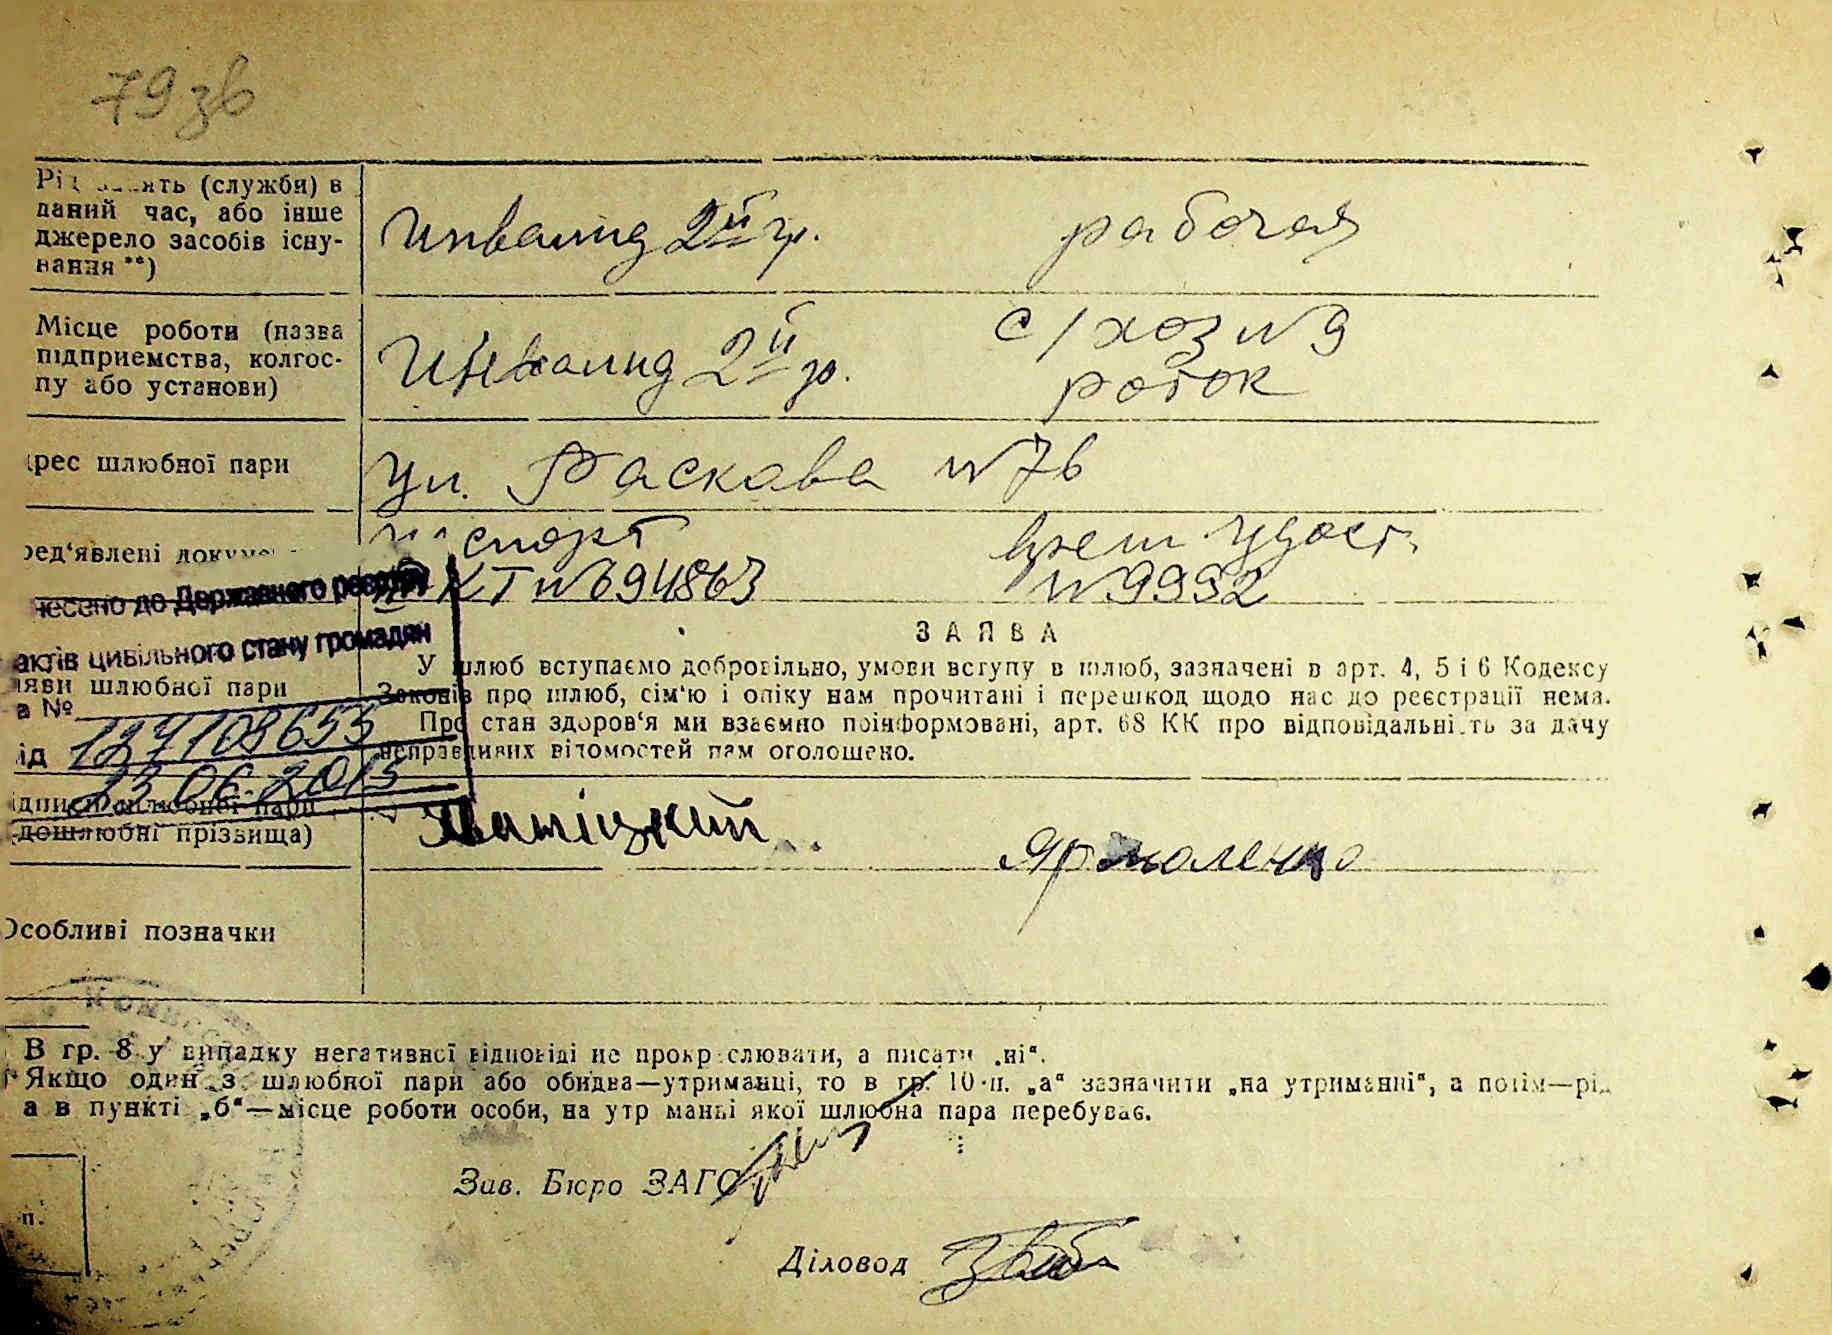 79 зв
занять (служби) в
даний час, або інше
джерело засобів існу-
вання **)
Инвалид 2й гр.
рабочая
Місце роботи (назва
підприемства, колгос-
пу або установи)
Инвалид 2й гр.
с/хоз № 9
рес шлюбної пари
ул. Раскава № 7в
ред'явлені
№ 694863
удост.
№ 9992
несено до Державного реєстру
актів цивільного стану громадян
шлюбної пари
№
127108655
23.06.2015
ЗАЯВА
У шлюб вступаємо добровільно, умови вступу в шлюб, зазначені в арт. 4, 5 і 6 Кодексу
Законів про шлюб, сім'ю і опіку нам прочитані і перешкод щодо нас до реєстрації нема.
Про стан здоров'я ми взаємно поінформовані, арт. 68 КК про відповідальність за дачу
неправдивих відомостей нам оголошено.
шлюбної пари
(дошлюбні прізвища)
Ярмоленко
Особливі позначки
В гр. 8 у випадку негативної відповіді не прокреслювати, а писати „ні“.
Якщо один з шлюбної пари або обидва—утриманці, то в гр. 10 п. „а“ зазначити „на утриманні“, а потім—рід
а в пункті „б“—місце роботи особи, на утриманні якої шлюбна пара перебуває.
Зав. Бюро ЗАГС
Діловод